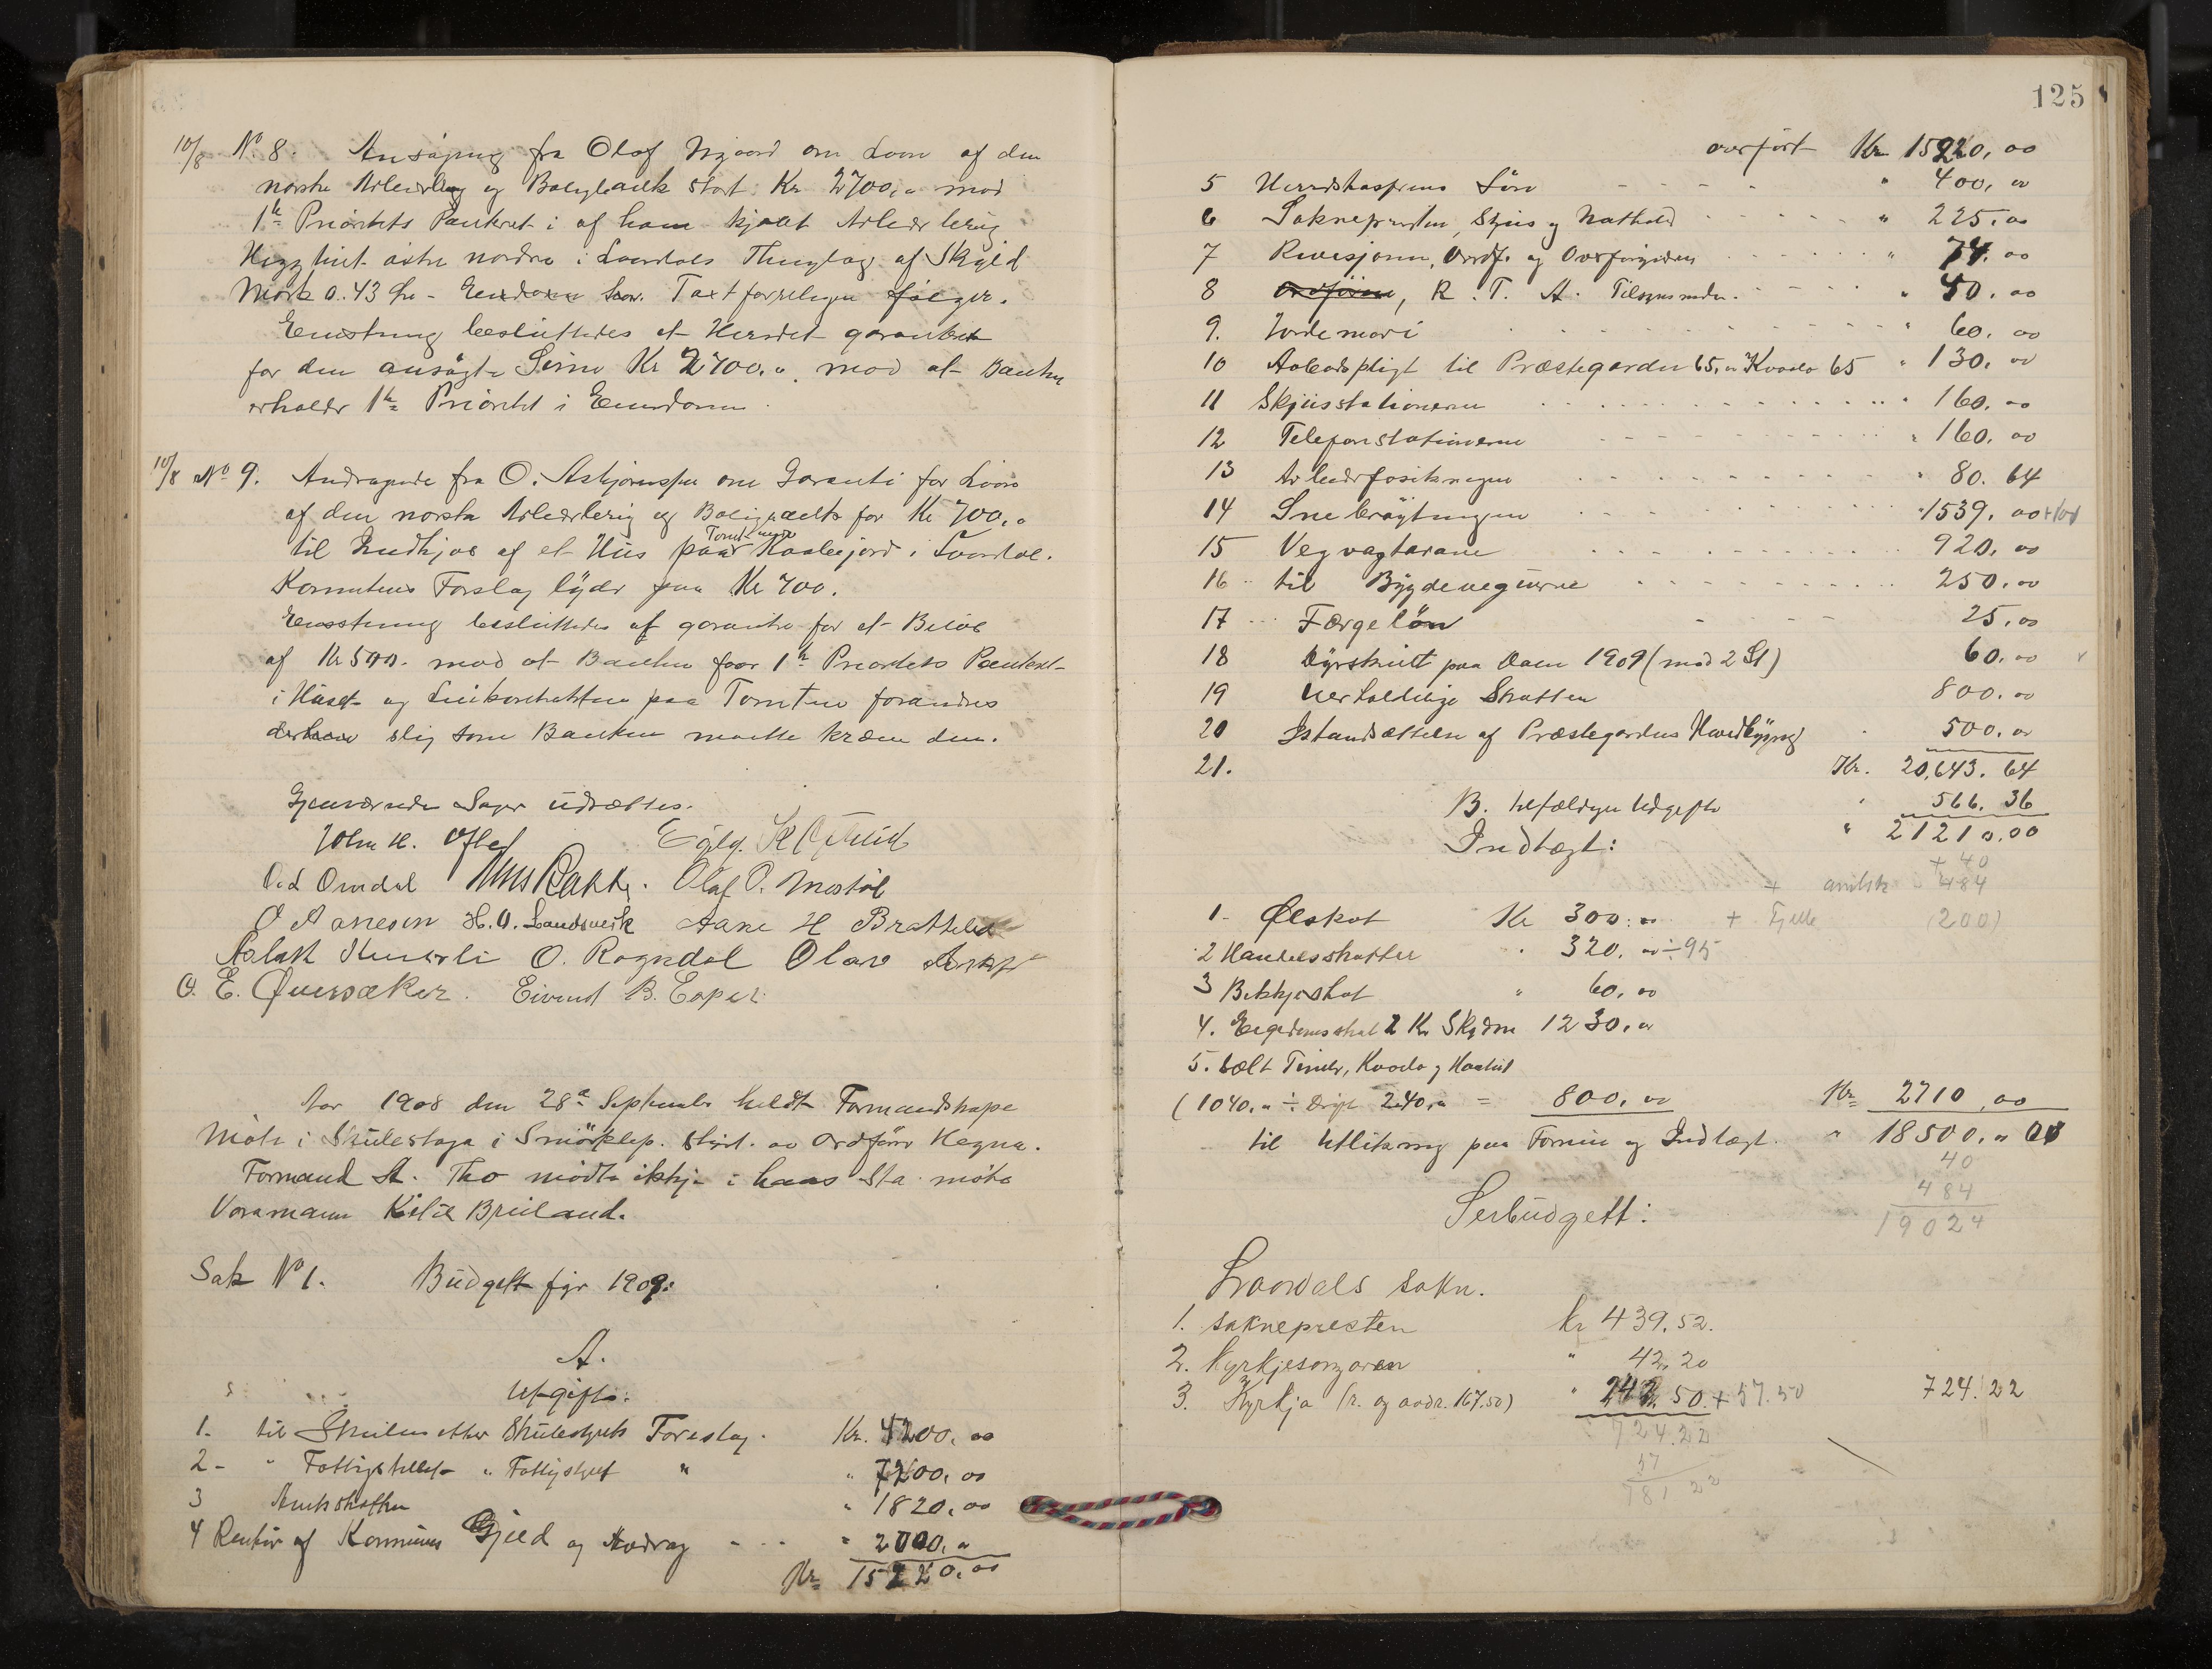 10/8 No 8. Ansögning fra Olaf Nigaard om Laan af den
norske Arbeiderbrug og Boligbank stort Kr 2700,00 mod
1ste Prioritets Panteret i af ham kjøbt Arbeiderbrug
østre nordre i Laardals Thinglag af Skyld
Mark 0.43 Øre - Eiendoms Taxtforretning følger.
Enstemmig besluttedes at Herredet garanterer
for den ansøgte Sum Kr 2700,00 mod at Banken
erholder 1ste Prioritet i Eiendommen.
10/8 No 9. Andragende fra O. Asbjørnsen om Garanti for Laan
af den norske Arbeiderbrug og Boligbank for Kr 700,00
til Indkjøb af et Hus paa Tomt under Haalegjord i Laardal.
Komiteens Forslag lyder paa Kr 700.
Enstemmig besluttedes at garantere for et Beløb
af Kr 500. mod at Banken faar 1ste Prioritets Panteret
i Huset og Leiekontrakten paa Tomten forandres
slig som Banken maatte kræve den.
Gjenværende Sager udsættes.
John H. Ofte Egilg.
O.A. Omdal Olaf O. Mostøl
O Aanesen H. O. Landsverk Aane H Bratteland
Aslak O. Rogndal Olav
O. E. Qversøker. Eivind B.
Aar 1908 den 28de September heldt Formandskape
møte i Skulestoga i Smörklep. Styrt av Ordførar Hegna.
Formand A. Tho mödte ikkje i hans Sta møtte
Varamann Ketil Bruland.
Sak No 1. Budgett fyr 1909:
A.
Utgifte:
1. til Skulen etter Skulestyrets Foreslag. Kr. 4200,00
2 - " Fattigstellet " Fattigstyret " " 7200,00
3 Amtskatten " 1820,00
4 Rentur af Komunens Gjeld og Avdrag - - - " 2000,00
Kr 15220,00
125
overført Kr 15220,00
5 Herredskasserens Løn - - - - " 400,00
6 Soknepresten, Skjus og Nathold - - - - " 225.00
7 Revisjonen, Ordf. og Overformynderi - - - - " 74.00
8 Ordföraren, R. T. A. Tilsynsmedn. - - - - " 40.00
9. Jordemori - - - - " 60.00
10 Aabodspligt til Præstegarden 65,00 Kvaale 65 " 130,00
11 Skjusstationerne - - - - " 160,00
12 Telefonstationerne - - - - " 160.00
13 Arbeiderforsikringen - - - - " 80.64
14 Snebrøytingen - - - - " 1539.00
15 Vegvagtarane - - - - 920,00
16 til Bygdevegjerne - - - - 250.00
17 Færgeløn - - - - 25,00
18 Dyrskuet paa Dalen 1909 (med 2 St) 60.00
19 Uerholdelige Skatter 800.00
20 Istandsættelse af Præstegardens Hovedbygnig 500.00
21. Kr. 20,643.64
B. tilfældige Udgifte " 566.36
Indtægt: " 21210.00
+ 40
+ amtsk 484
1- Ølskat Kr 300.00 + Fjelle (200)
2 Handelsskatter " 320.00 ÷ 95
3 Bikkjeskat " 60,00
4. Eigedomsskat 2 Kr Skydm 1230,00
5. Selt Timber, Kvaale og Haatvet
(1040,00 ÷ Drift 240,00 = 800,00 Kr 2710,00
til Utlikning paa Formue og Indtægt. " 18500,00
40
484
19024
Serbudgett:
Laardals sokn.
1. soknepresten kr 439.52.
2. Kyrkjesongaren " 42,20
3. Kyrkja (r. og avdr. 167.50) " 242.50 + 57.50 724.22
724.22
57
781 22